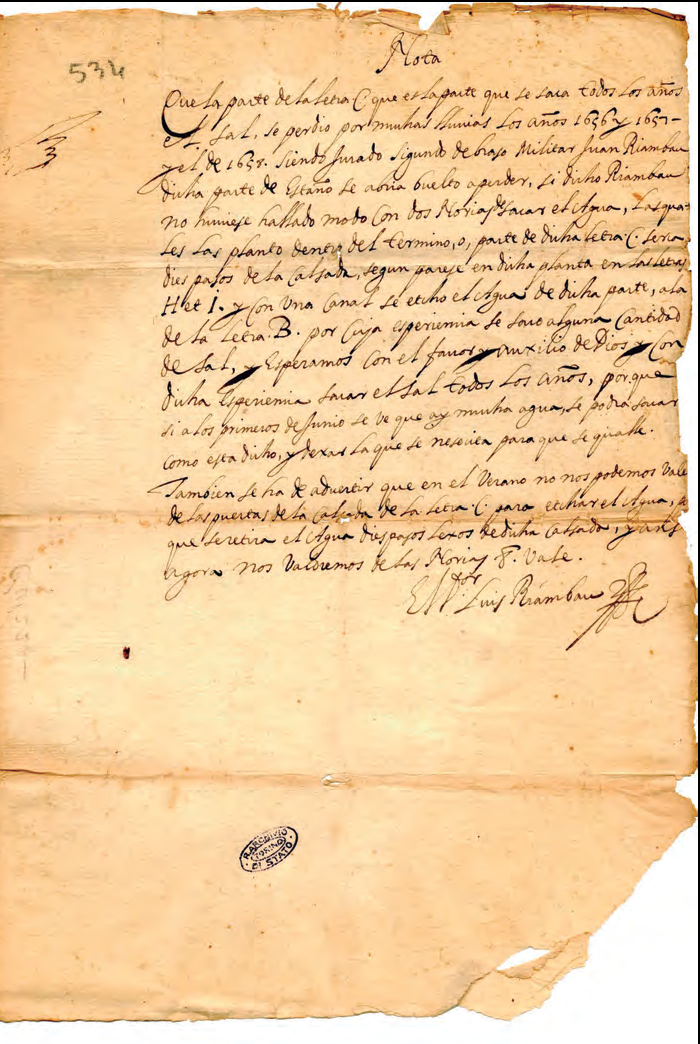 534
Nota
Que la parte de la letra C. que es la parte que se saca todos los años
el Sal, se perdio por muchas lluvias los años 1656 y 1657
y el de 1658. siendo Jurado Sigundo de braso Militar Juan Riambau
dicha parte de Estaño se abria buelto a perder, si dicho Riambau
no huuiese hallado modo con dos Norias de sacar el Agua, las qua
les las planto dentro del termino, o, parte de dicha letra C. seria
dies pasos de la calsada, segun parese en dicha planta en las letras
H et I. y con una Canal se etcho el Agua de dicha parte, a la
de la letra B. por cuja esperiemia se saco alguna Cantidad
de Sal, y Esperamos con el fauor y auxilio de Dios y con
dicha Esperiemia sacar el sal todos los años, porque
si a los primeros de Junio se ve que ay mucha agua, se podra sacar
como esta dicho, y dexar la que se nesecita para que se qualle.
Tambien se ha de aduertir que en el Verano no nos podemos Vale
de las puertas de la calsada de la letra C. para etchar el Agua,
que se retira el Agua dies pasos lexos de dicha calsada, y ans
agora nos Valdremos de las Norias &. Vale.
El D.or Luis Riambau
R. ARCHIVIO
(TORINO)
DI STATO